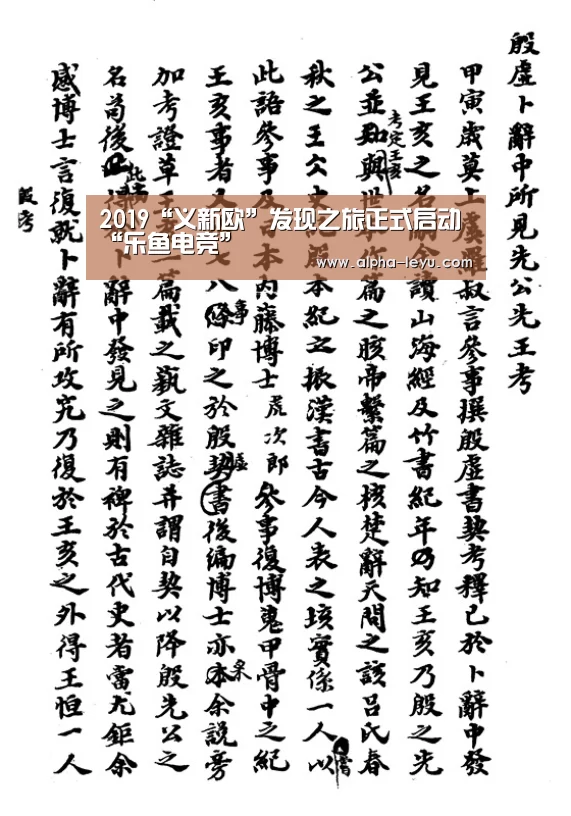 殷虛卜辭中所見先公先王考
甲寅歲莫上虞羅叔言參事撰殷虛書契考釋已於卜辭中發
見王亥之名嗣余讀山海經及竹書紀年乃知王亥乃殷之先
考定王亥
公並知與世本作篇之胲帝繫篇之核楚辭天問之該呂氏春
秋之王史殷本紀之振漢書古今人表之垓實係一人以
嘗
此語參事及日本內藤博士虎次郎參事復博蒐甲骨中之紀
王亥事者又七八條印之於殷契書後編博士亦本余說旁
事
虛
采
加考證草王一篇載之藝文雜誌并謂自契以降殷先公之
名苟後得卜辭中發見之則有裨於古代史者當尤鉅余
此
感博士言復就卜辭有所攻究乃復於王亥之外得王恒一人
殷考
2019“义新欧”发现之旅正式启动
“乐鱼电竞”
www.alpha-leyu.com